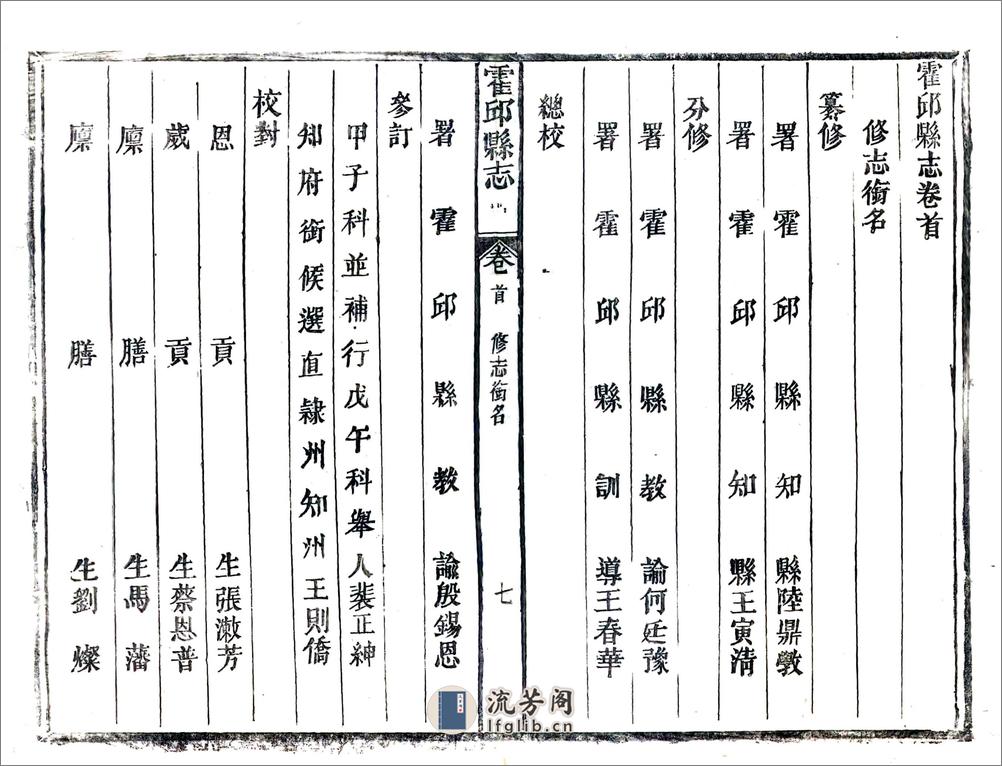 霍邱縣志卷首
修志銜名
纂修
署霍邱縣知縣陸鼎斆
署霍邱縣知縣王寅清
分修
署霍邱縣教諭何廷豫
署霍邱縣訓導王春華
總校
霍邱縣志
卷首 修志銜名
七
署霍邱縣教諭殷錫恩
參訂
甲子科並補行戊午科舉人裴正紳
知府銜候選直隸州知州王則僑
校對
恩貢生張漱芳
歲貢生蔡恩普
廩膳生馬藩
廩膳生劉燦
流芳阁
lfglib.cn